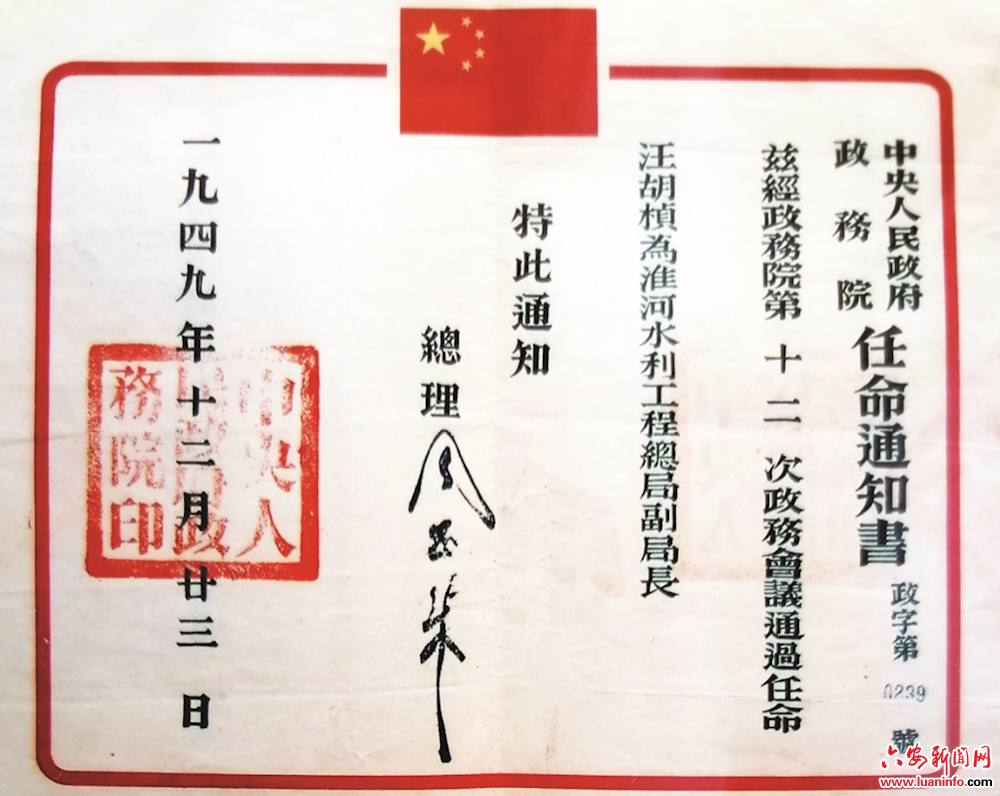 中央人民政府
政務院
任命通知書
政字第 0239 號
茲經政務院第 十二 次政務會議通過任命
汪胡楨為淮河水利工程總局副局長
特此通知
總理 周恩來
一九四九年十二月廿三日
中央人
民政府政
務院印
六安新闻网
www.luaninfo.com